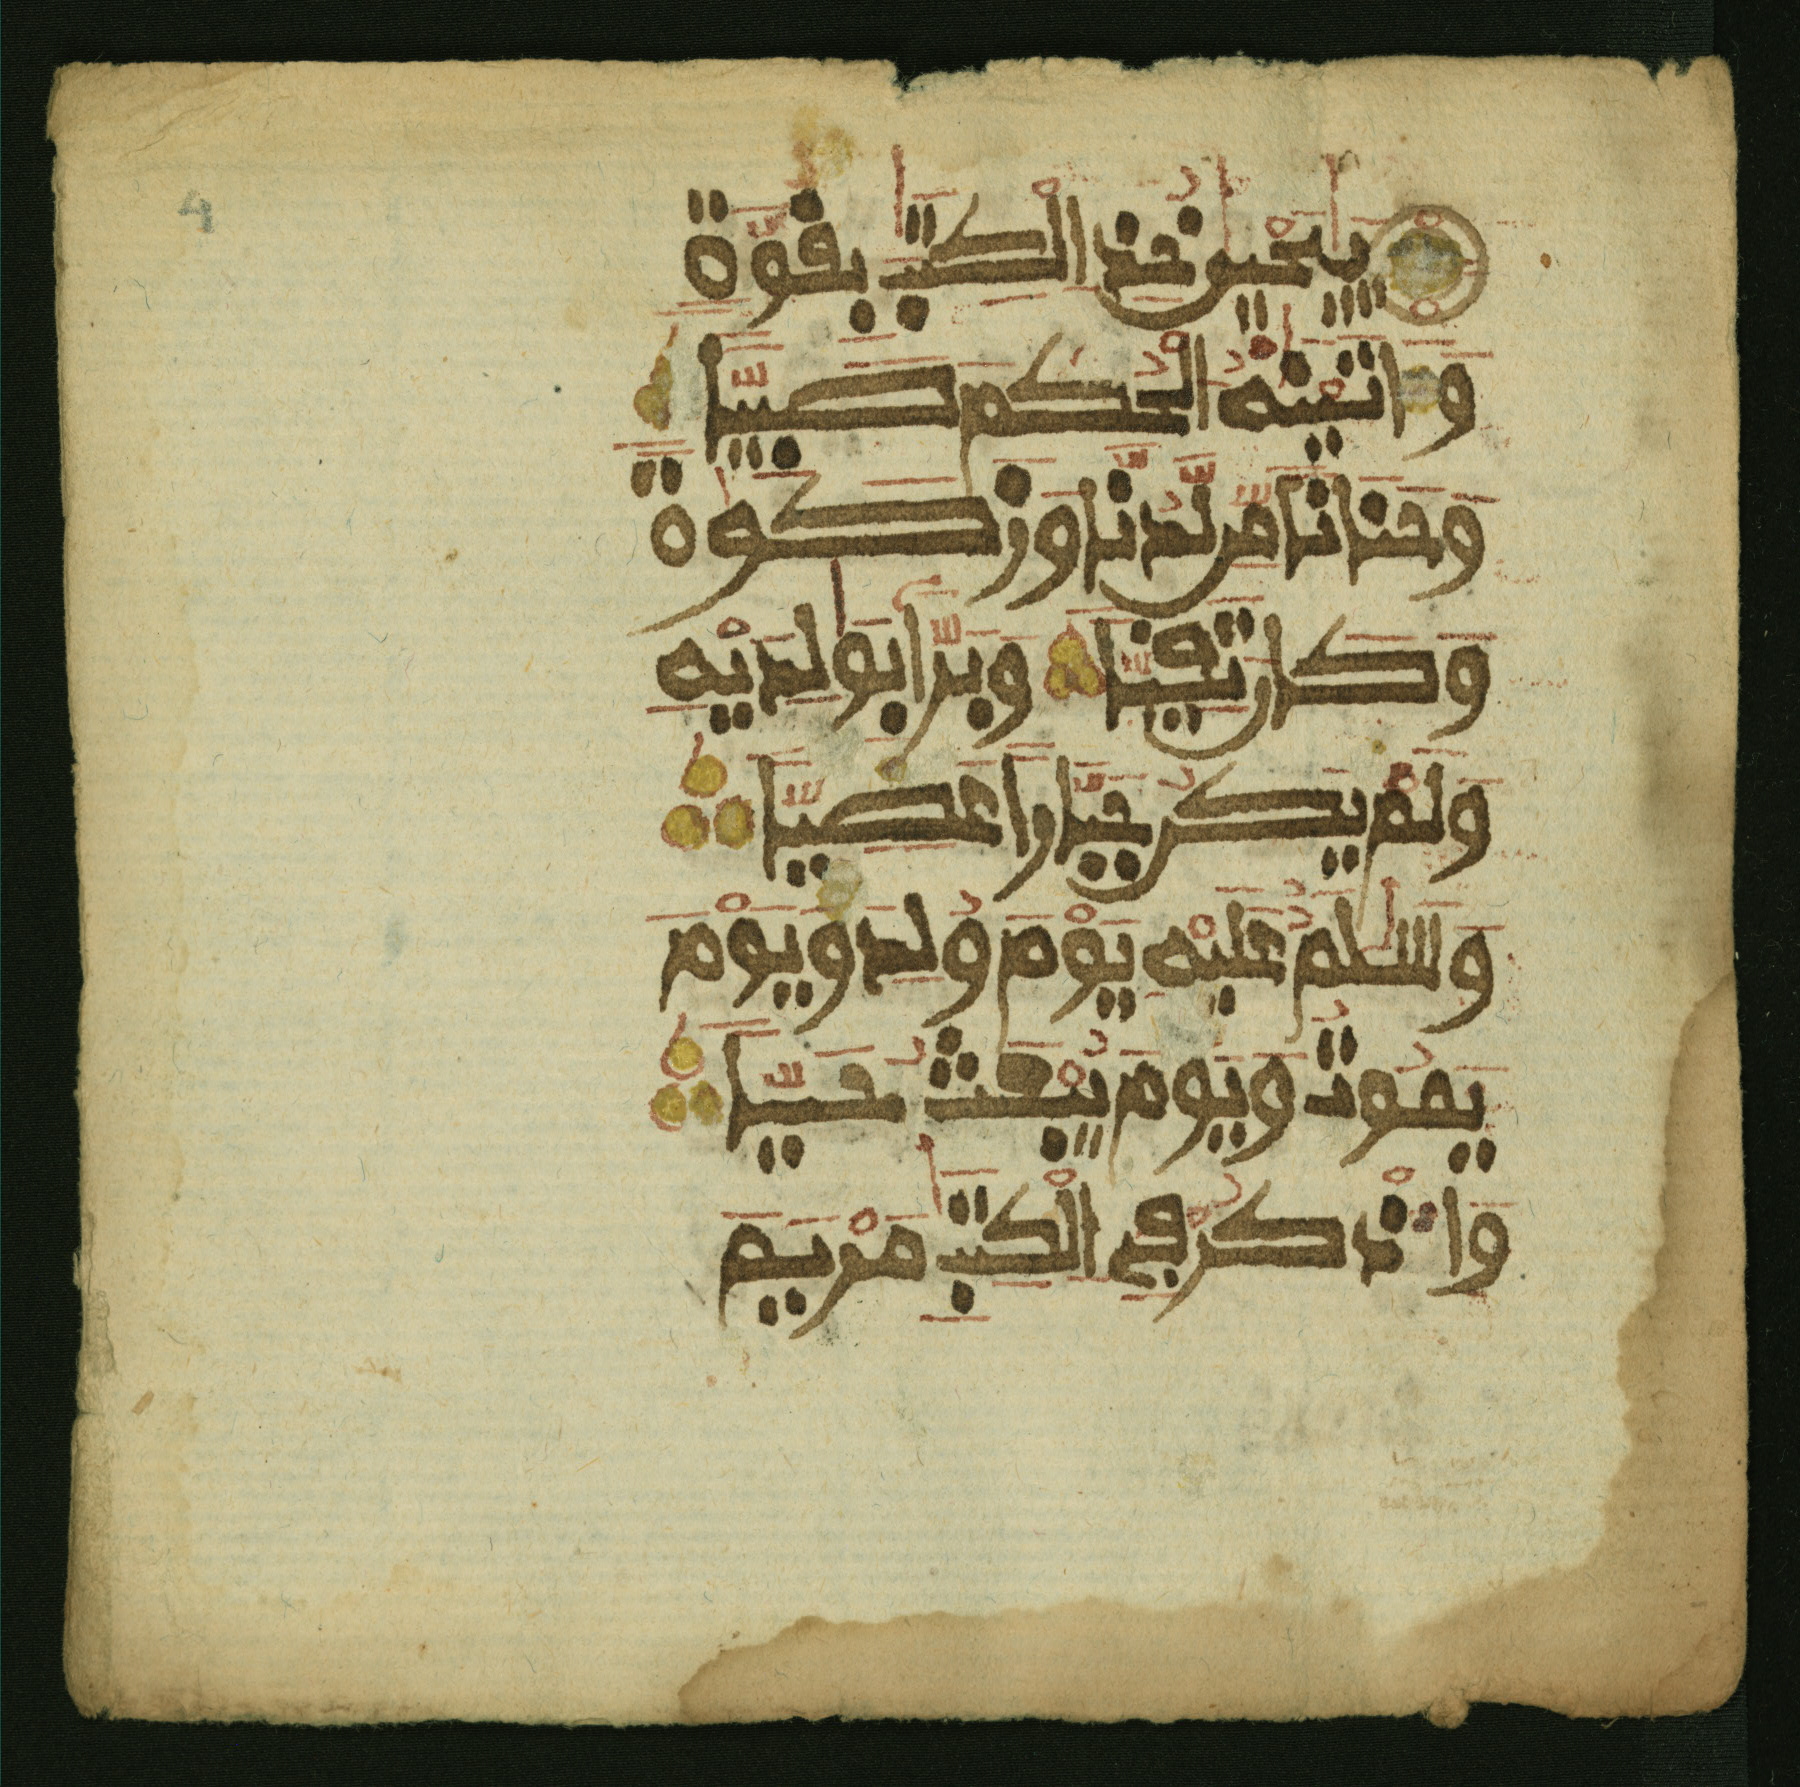 يٰيَحْيٰى خُذِ الْكِتٰبَ بِقُوَّةٍ
وَءَاتَيْنٰهُ الْحُكْمَ صَبِيًّا
وَحَنَانًا مِّن لَّدُنَّا وَزَكَوٰةً
وَكَانَ تَقِيًّا وَبَرًّا بِوٰلِدَيْهِ
وَلَمْ يَكُن جَبَّارًا عَصِيًّا
وَسَلٰمٌ عَلَيْهِ يَوْمَ وُلِدَ وَيَوْمَ
يَمُوتُ وَيَوْمَ يُبْعَثُ حَيًّا
وَاذْكُرْ فِي الْكِتٰبِ مَرْيَمَ
4